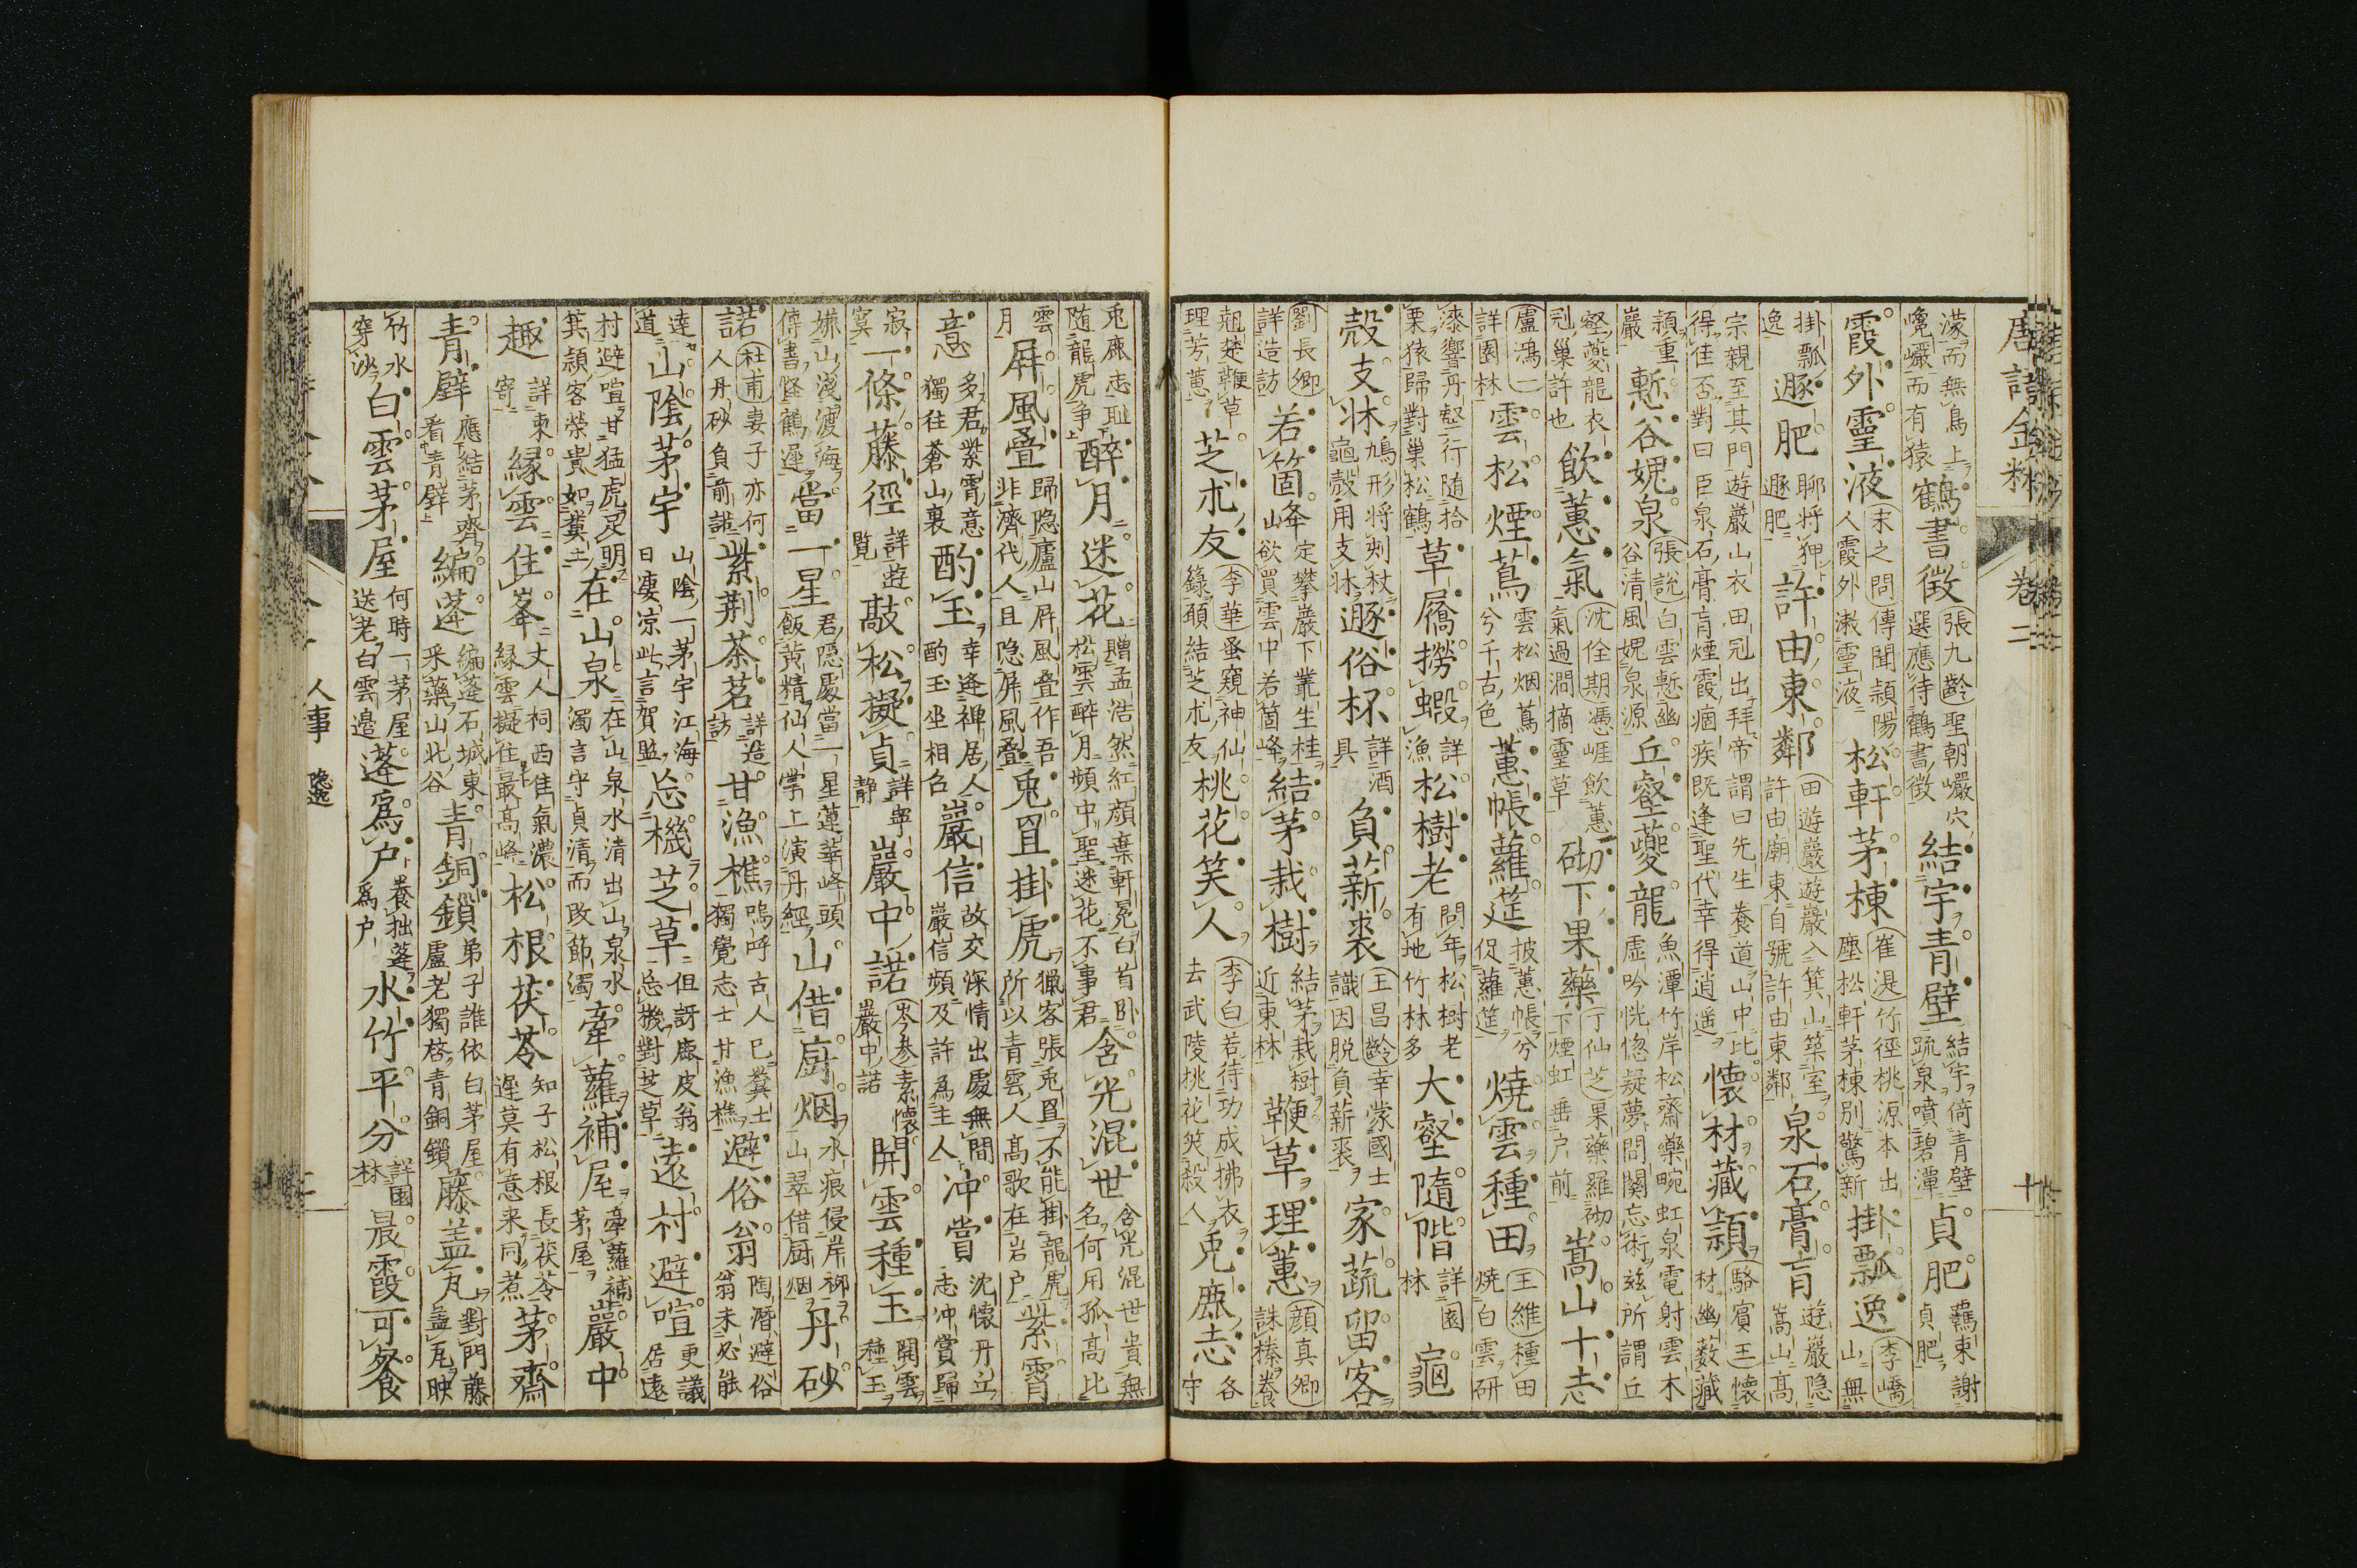 唐詩金粉 卷二 十
濛而無鳥上巉巗而有猿 鶴書徴 張九齡聖朝巗穴選應待鶴書徴 結宇青壁 結宇倚青壁疏泉噴碧潭 貞肥 覊束謝貞肥
霞外靈液 宋之問傳聞頴陽人霞外漱靈液 松軒茅棟 崔湜竹徑桃源本出塵松軒茅棟別驚新 掛瓢逸 李嶠山無
掛瓢逸 遯肥 聊將狎遯肥 許由東鄰 田遊巖遊巖入箕山築室許由廟東自號許由東鄰 泉石膏肓 遊巖隐嵩山高
宗親至其門遊巖山衣田冠出拜帝謂曰先生養道山中比得佳否對曰臣泉石膏肓煙霞痼疾既逢聖代幸得逍遥 懷材藏頴 駱賓王懷材幽薮藏
頴重巖 慙谷媿泉 張説白雲慙幽谷清風媿泉源 丘壑夔龍 魚潭竹岸松齋藥畹虹泉電射雲木虚吟恍惚疑夢問闋忘術兹所謂丘
壑夔龍衣冠巢許也 飲蕙氣 沈佺期憑崕飲蕙氣過澗摘靈草 砌下果藥 仙芝果藥羅砌下煙虹垂户前 嵩山十志
盧鴻一詳園林 雲松煙蔦 雲松烟蔦兮千古色 蕙帳蘿筵 披蕙帳兮促蘿筵 燒雲種田 王維種田燒白雲研
漆響丹壑行随拾栗猿歸對巢松鶴 草屩撈蝦 詳漁 松樹老 問年松樹老有地竹林多 大壑隨階 詳園林 龜
殼支牀 鳩形將刻杖龜殼用支牀 遯俗杯 詳酒具 負薪裘 王昌齡幸蒙國士識因脱負薪裘 家蔬留客
劉長卿詳造訪 若箇峰 定攀巖下叢生桂欲買雲中若箇峰 結茅栽樹 結茅栽樹近東林 鞭草理蕙 顔真卿誅榛養
翹楚鞭草理芳蕙 芝朮友 李華蚤窺神仙籙願結芝朮友 桃花笑人 李白若待功成拂衣去武陵桃花笑殺人 兎鹿志 各守
兎鹿志耻随龍虎爭 醉月迷花 贈孟浩然紅顔棄軒冕白首卧松雲醉月頻中聖迷花不事君 含光混世 含光混世貴無名何用孤高比
雲月 屏風叠 歸隐廬山屏風叠作吾非濟代人且隐屏風叠 兎罝掛虎 獵客張兎罝不能掛龍虎所以青雲人高歌在岩户 紫霄
意 多君紫霄意獨往蒼山裏 酌玉 幸逢禅居人酌玉坐相召 巖信 故交深情出處無間巖信頻及許為主人 冲賞 沈懷丹丘志冲賞歸
寂寞 一條藤徑 詳遊覧 敲松擬貞 詳寧静 巖中諾 岑参素懷巖中諾 開雲種玉 開雲種玉
嫌山淺渡海傳書怪鶴遅 當一星 君隠處當一星蓮華峰頭飯黄精仙人掌上演丹經 山借厨烟 水痕侵岸柳山翠借厨烟 丹砂
諾 杜甫妻子亦何人丹砂負前諾 紫荆茶茗 詳造訪 甘漁樵 嗚呼古人已糞土獨覺志士甘漁樵 避俗翁 陶潛避俗翁未必能
達道 山陰茅宇 山陰一茅宇江海日凄凉此言賀監 忘機芝草 但訝鹿皮翁忘機對芝草 遠村避喧 更議居遠
村避喧甘猛虎足明箕頴客榮貴如糞土 在山泉 在山泉水清出山泉水濁言守貞清而改節濁 牽蘿補屋 牽蘿補茅屋 巖中
趣 詳束寄 縁雲住峯 丈人祠西佳氣濃縁雲擬住最高峰 松根茯苓 知子松根長茯苓遅莫有意来同煮 茅齋
青壁 應結茅齋看青壁 編蓬 編蓬石城東采藥山北谷 青銅鎖 弟子誰依白茅屋盧老獨啓青銅鎖 藤盖瓦 對門藤盖瓦映
竹水穿沙 白雲茅屋 何時一茅屋送老白雲邉 蓬爲户 養拙蓬爲户 水竹平分 詳園林 晨霞可餐
人事 隐逸